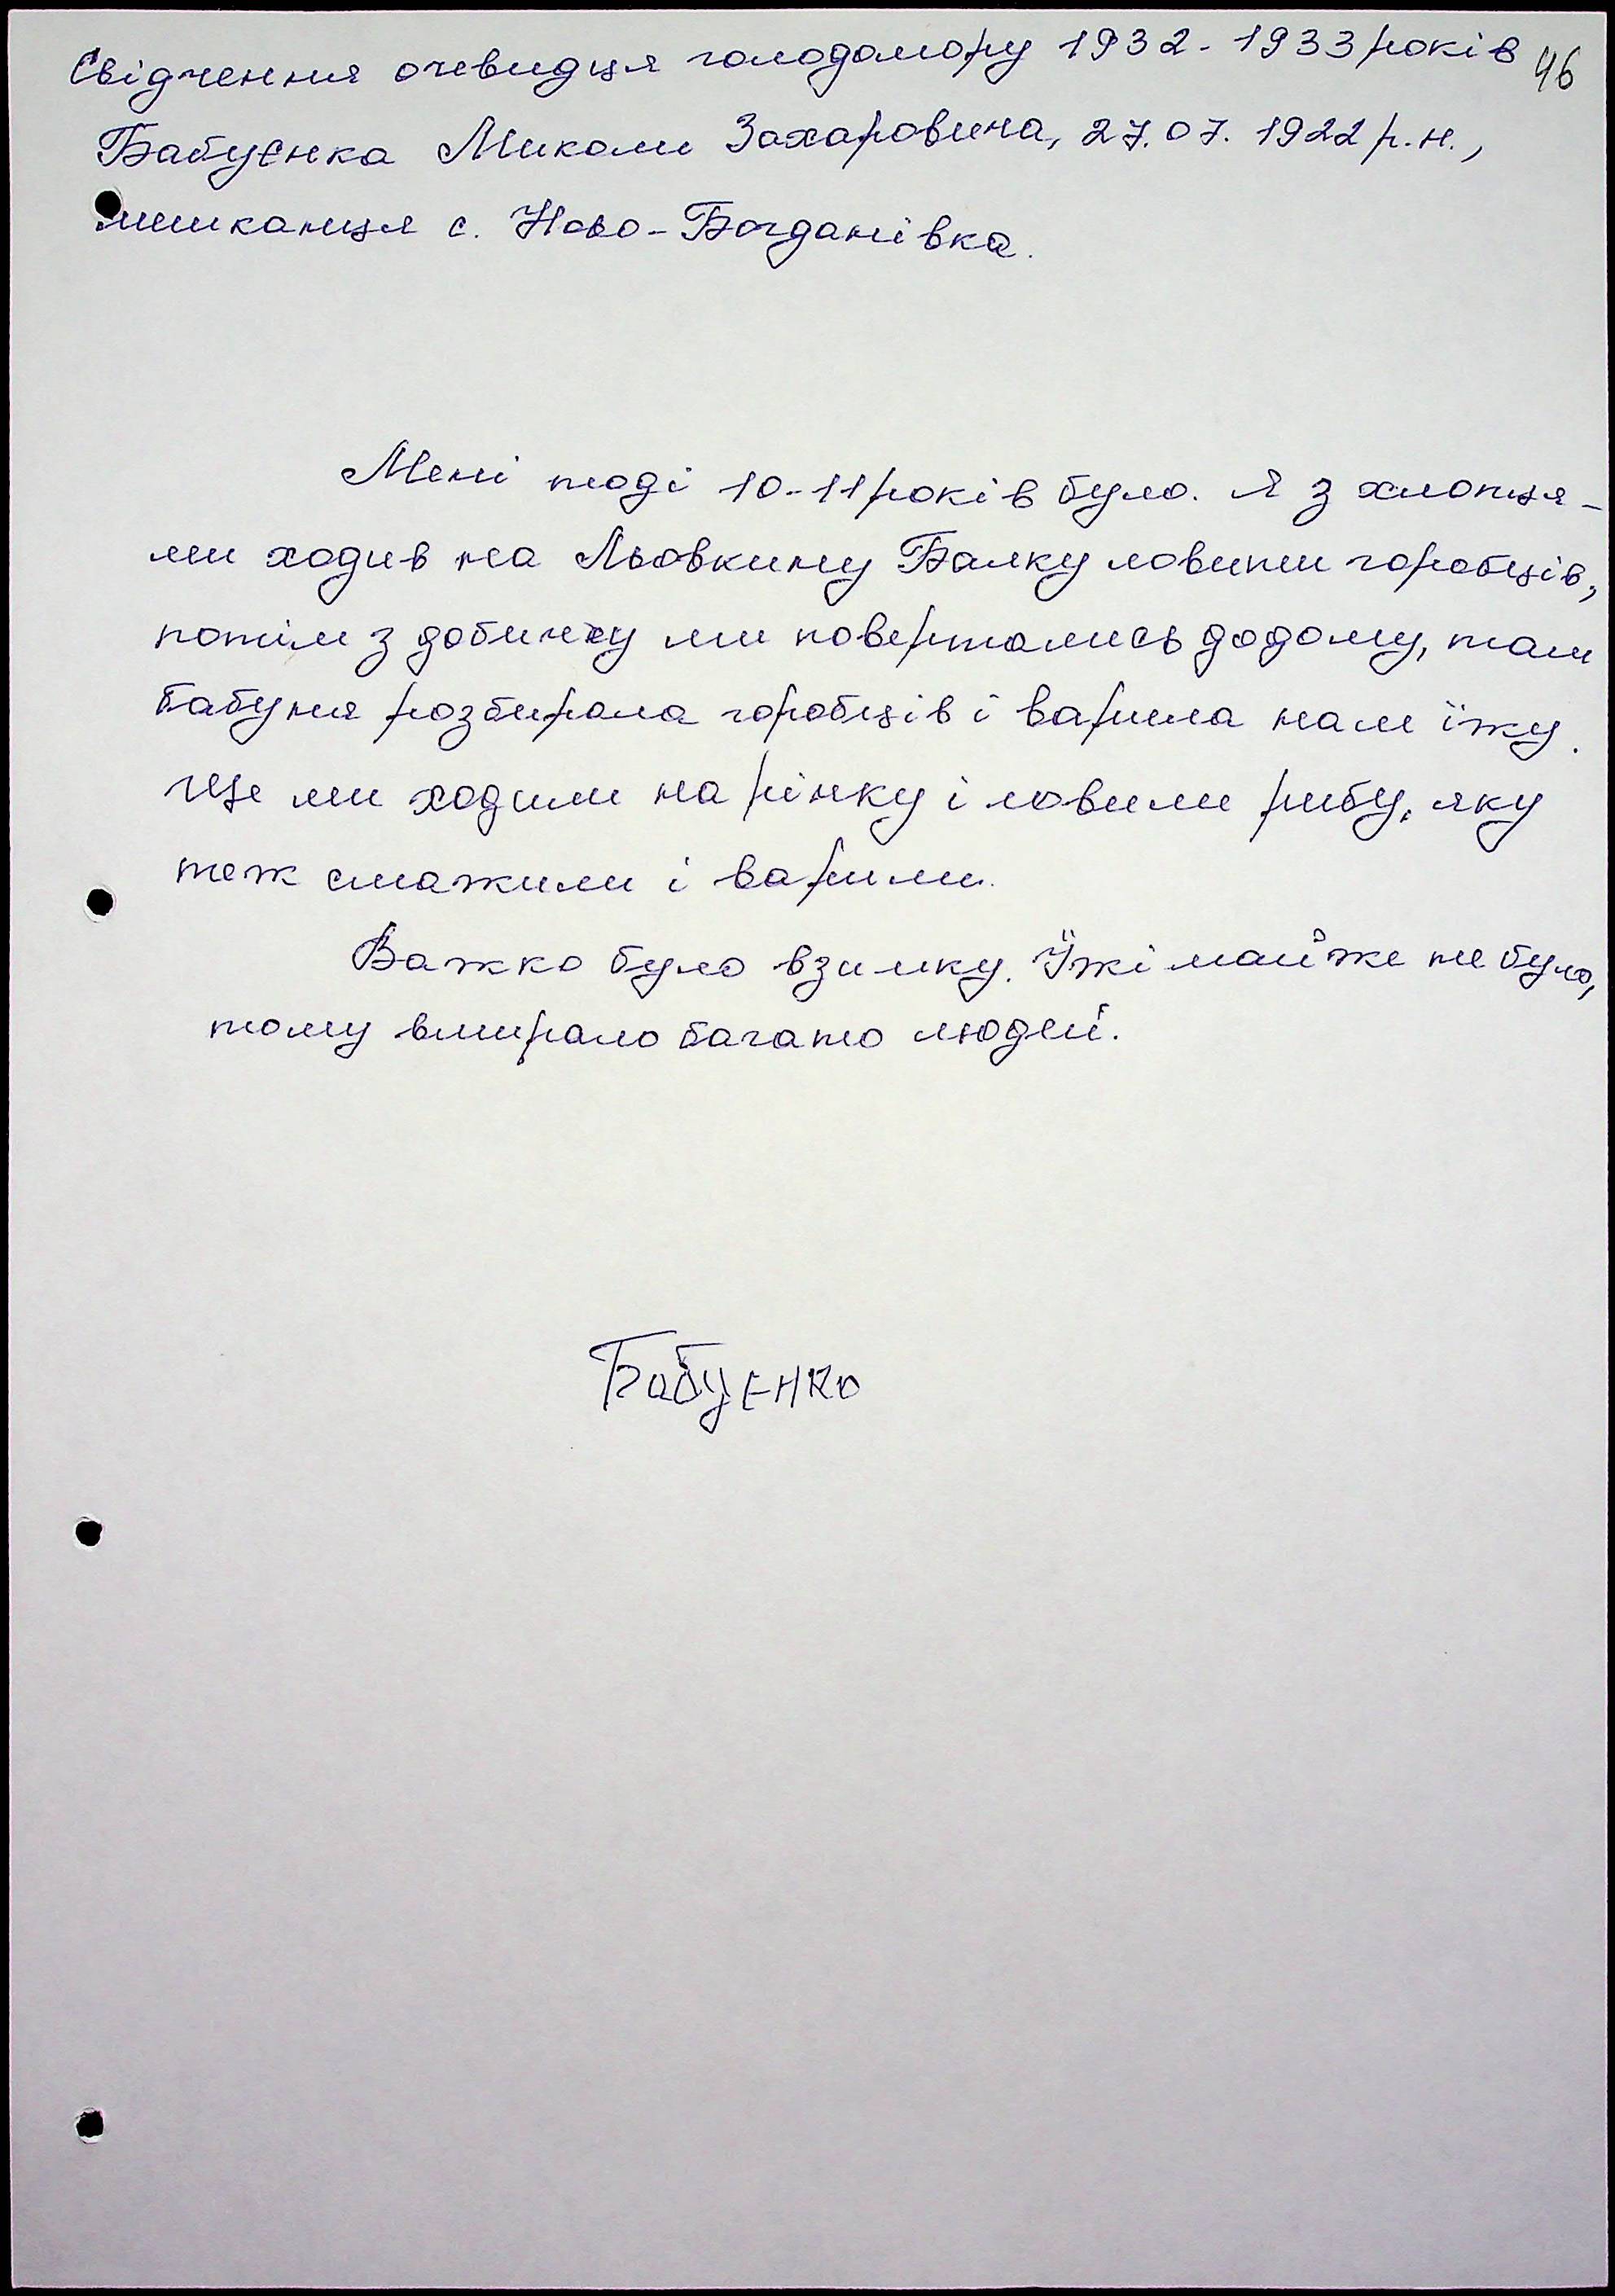 Свідчення очевидця голодомору 1932-1933 років 46
Бабуєнка Миколи Захаровича, 27.07.1922 р.н.,
мешканця с. Ново-Богданівка.
Мені тоді 10-11 років було. Я з хлопця-
ми ходив на Льовкину Балку ловити горобців,
потім з добичу ми повертались додому, там
бабуня розбирала горобців і варила нам їжу.
Ще ми ходили на річку і ловили рибу, яку
теж смажили і варили.
Важко було взимку. Їжі майже не було,
тому вмирало багато людей.
Бабуенко